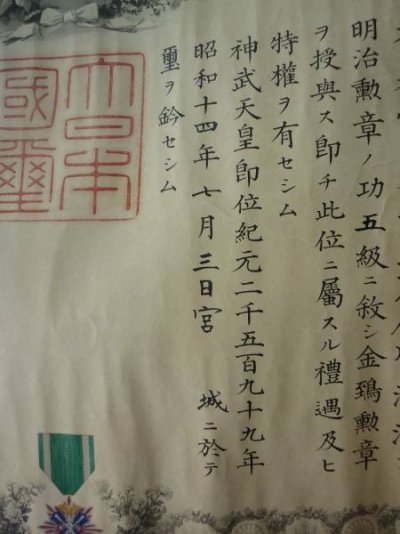 明治勳章ノ功五級ニ敍シ金鵄勳章
ヲ授與ス即チ此位ニ屬スル禮遇及ヒ
特權ヲ有セシム
神武天皇即位紀元二千五百九十九年
昭和十四年七月三日宮 城ニ於テ
璽ヲ鈐セシム
大日本
國璽